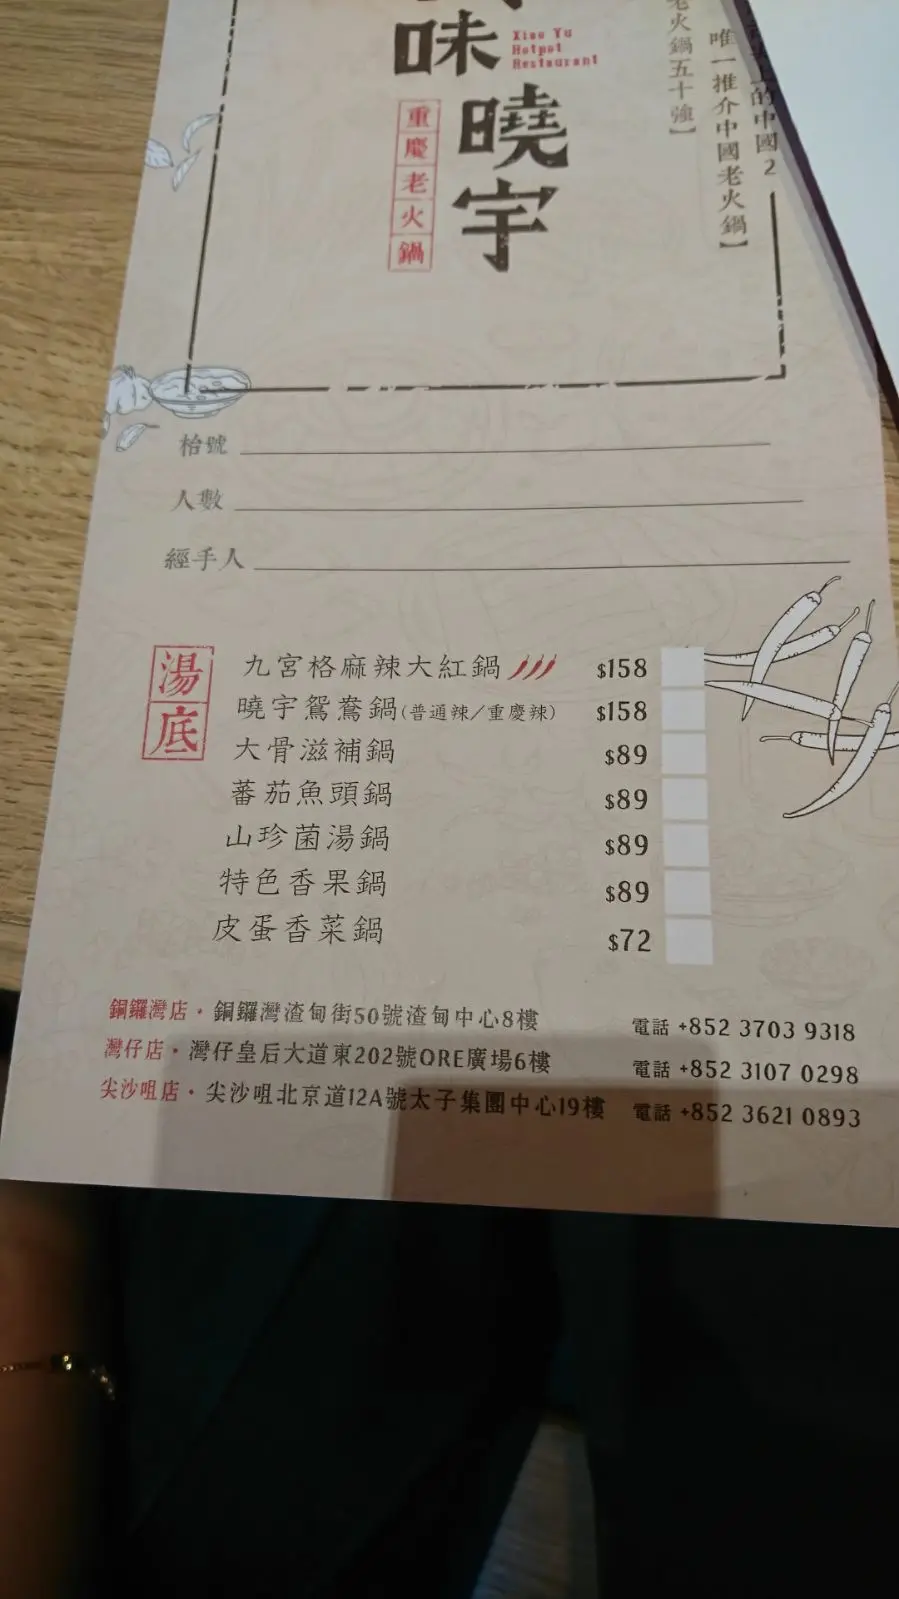 味
曉宇
Xiao Yu
Hotpot
Restaurant
重慶老火鍋
上的中國2
唯一推介中國老火鍋】
老火鍋五十強】
枱號
人數
經手人
湯底
九宮格麻辣大紅鍋 $158
曉宇鴛鴦鍋(普通辣/重慶辣) $158
大骨滋補鍋 $89
蕃茄魚頭鍋 $89
山珍菌湯鍋 $89
特色香果鍋 $89
皮蛋香菜鍋 $72
銅鑼灣店・銅鑼灣渣甸街50號渣甸中心8樓 電話 +852 3703 9318
灣仔店・灣仔皇后大道東202號QRE廣場6樓 電話 +852 3107 0298
尖沙咀店・尖沙咀北京道12A號太子集團中心19樓 電話 +852 3621 0893